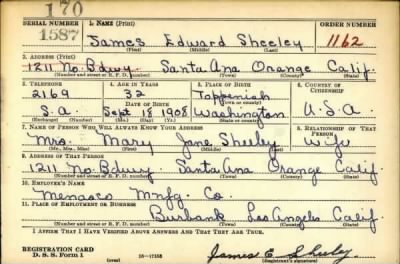 170
SERIAL NUMBER 1. NAME (Print) ORDER NUMBER
1587 James Edward Sheeley 1162
(First) (Middle) (Last)
2. ADDRESS (Print)
1211 No. Bdwy. Santa Ana Orange Calif.
(Number and street or R. F. D. number) (Town) (County) (State)
3. TELEPHONE 4. AGE IN YEARS 5. PLACE OF BIRTH 6. COUNTRY OF CITIZENSHIP
2169 32 Toppenish
DATE OF BIRTH (Town or county)
S.A. Sept 18 1908 Washington U.S.A
(Exchange) (Mo.) (Day) (Yr.) (State or country)
7. NAME OF PERSON WHO WILL ALWAYS KNOW YOUR ADDRESS 8. RELATIONSHIP OF THAT PERSON
Mrs. Mary Jane Sheeley Wife
(Mr., Mrs., Miss) (First) (Middle) (Last)
9. ADDRESS OF THAT PERSON
1211 No. Bdwy. Santa Ana Orange Calif
(Number and street or R. F. D. number) (Town) (County) (State)
10. EMPLOYER'S NAME
Menasco Mnfg. Co.
11. PLACE OF EMPLOYMENT OR BUSINESS
Burbank Los Angeles Calif.
(Number and street or R. F. D. number) (Town) (County) (State)
I AFFIRM THAT I HAVE VERIFIED ABOVE ANSWERS AND THAT THEY ARE TRUE.
REGISTRATION CARD
D. S. S. Form 1 James E Sheeley
(Registrant's signature)